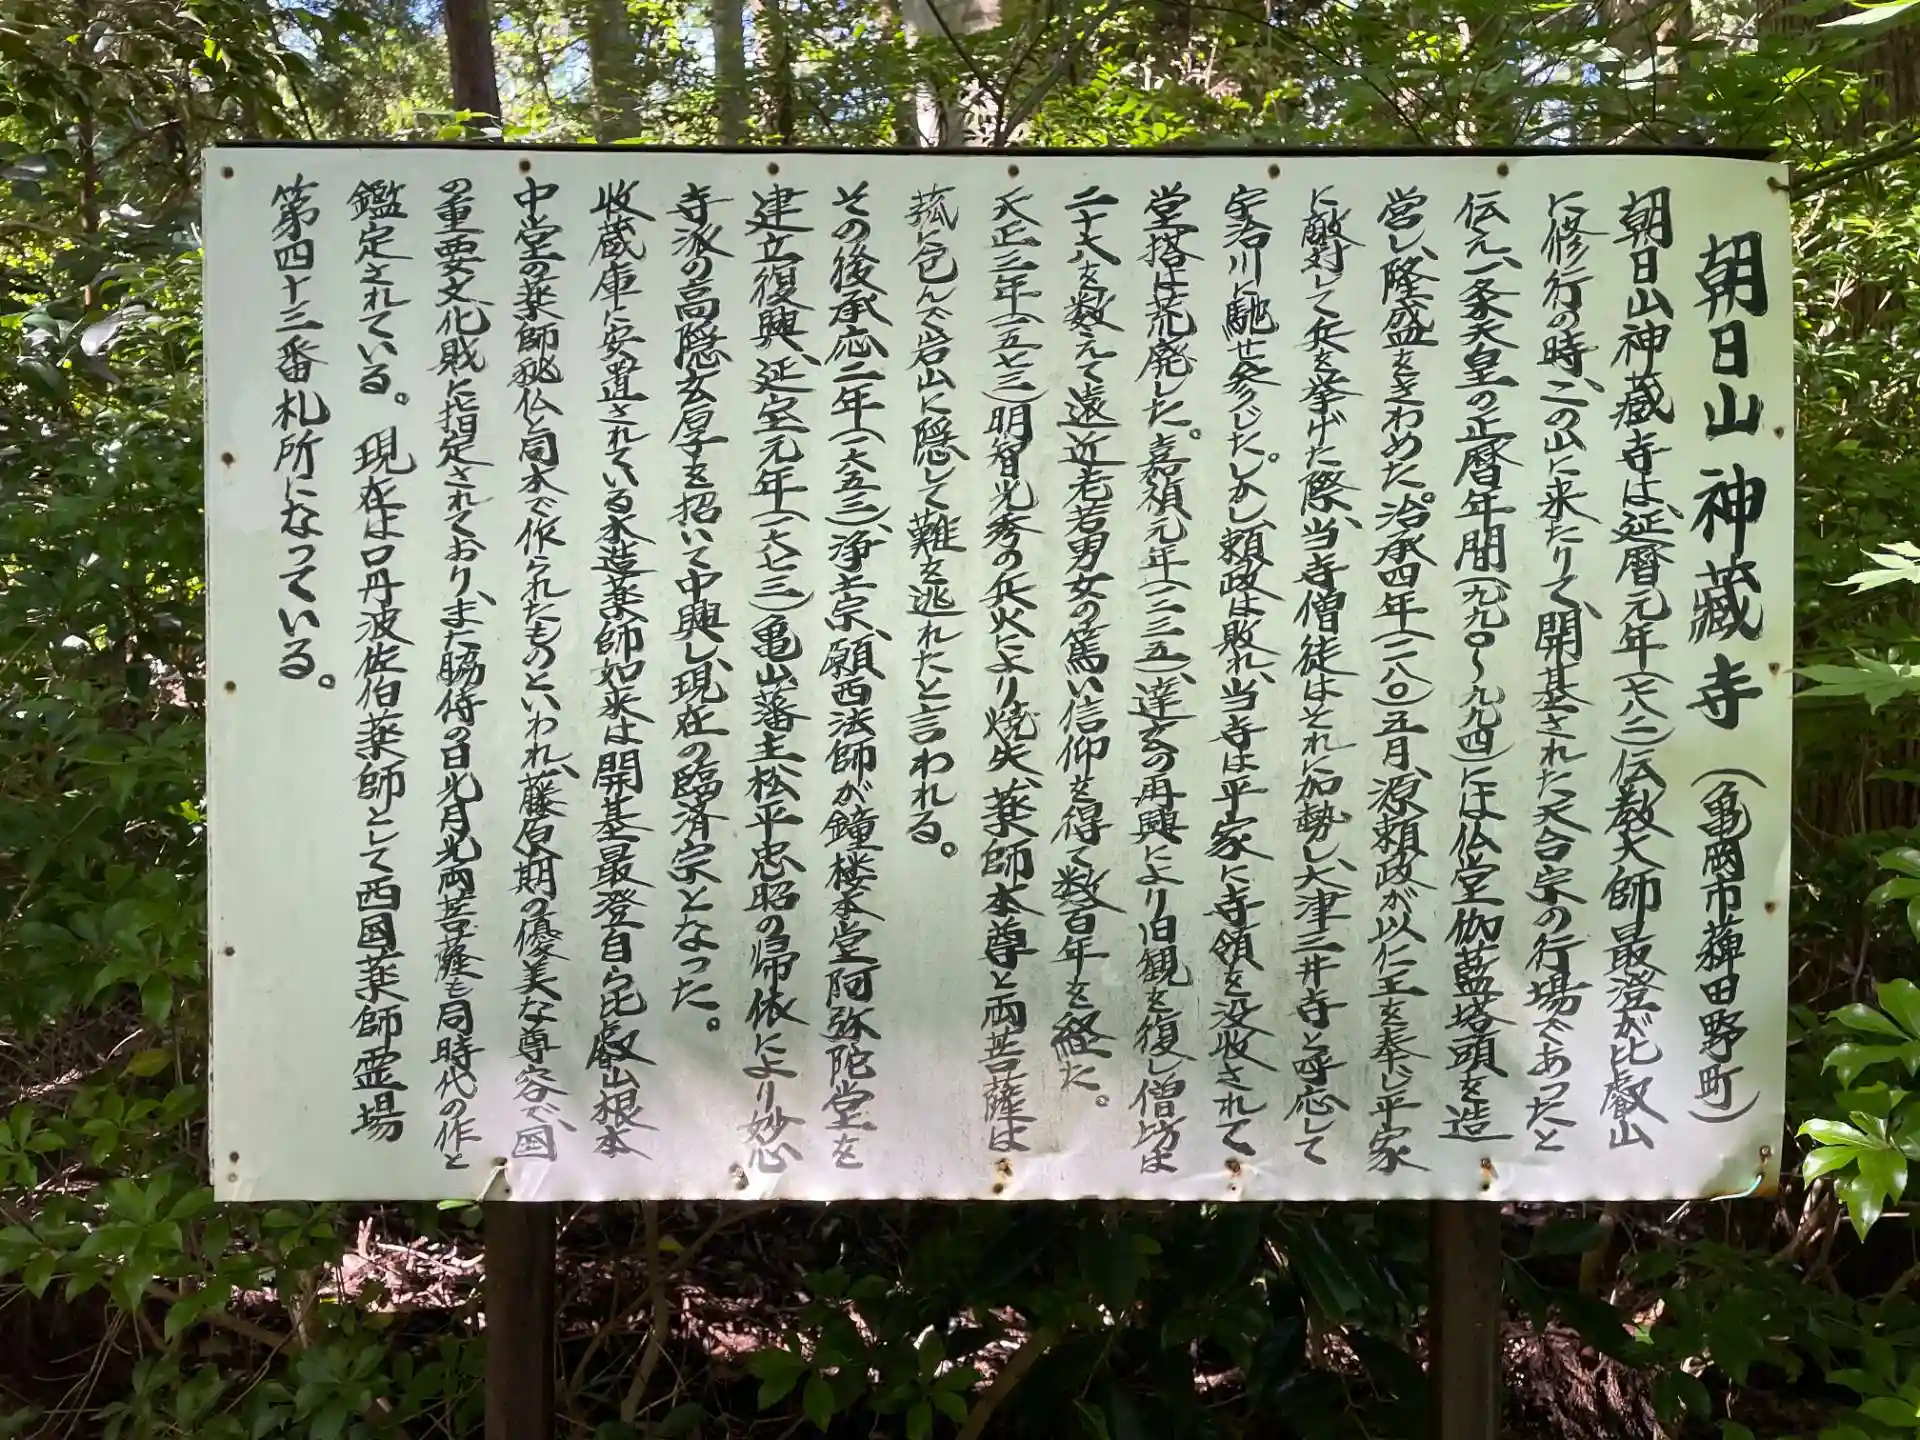 朝日山神蔵寺（亀岡市薭田野町）
朝日山神蔵寺は、延暦元年（七八二）伝教大師最澄が比叡山
に修行の時、この山に来たりて、開基された天台宗の行場であったと
伝え、一条天皇の正暦年間（九九〇～九九四）には仏堂伽藍塔頭を造
営し、隆盛をきわめた。治承四年（一一八〇）五月、源頼政が以仁王を奉じ平家
に敵対して兵を挙げた際、当寺僧徒はそれに加勢し、大津三井寺と呼応して
宇治川に馳せ参じた。しかし、頼政は敗れ、当寺は平家に寺領を没収されて
堂塔は荒廃した。嘉禎元年（一二三五）、達玄の再興により旧観を復し僧坊は
二十六を数えて遠近老若男女の篤い信仰を得て数百年を経た。
天正三年（一五七三）明智光秀の兵火により焼失、薬師本尊と両菩薩は
菰に包んで岩山に隠して難を逃れたと言われる。
その後承応二年（一六五三）、浄土宗、願西法師が鐘楼本堂阿弥陀堂を
建立復興、延宝元年（一六七三）亀山藩主松平忠昭の帰依により妙心
寺派の高隠玄厚子を招いて中興し、現在の臨済宗となった。
収蔵庫に安置されている木造薬師如来は開基最澄自ら比叡山根本
中堂の薬師秘仏と同木で作られたものといわれ、藤原期の優美な尊容で、国
の重要文化財に指定されており、また脇侍の日光月光両菩薩も同時代の作と
鑑定されている。現在は口丹波佐伯薬師として西国薬師霊場
第四十三番札所になっている。